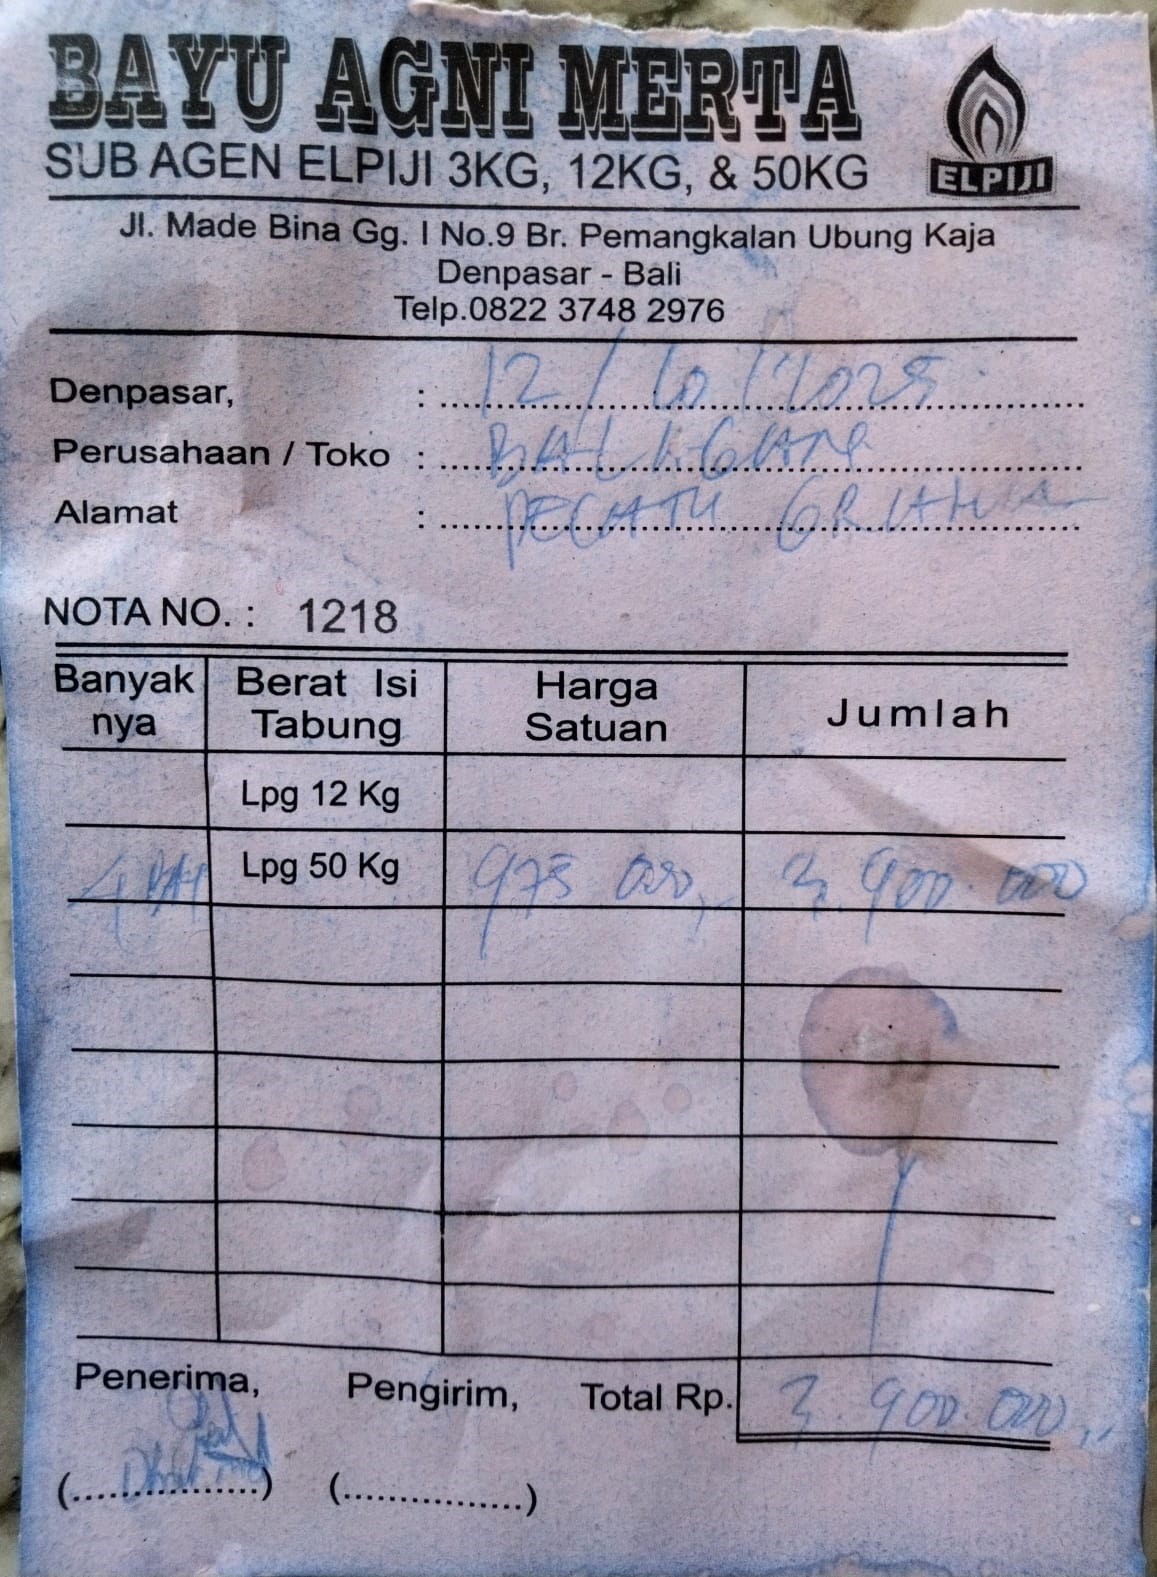 BAYU AGNI MERTA
SUB AGEN ELPIJI 3KG, 12KG, & 50KG
ELPIJI
Jl. Made Bina Gg. I No.9 Br. Pemangkalan Ubung Kaja
Denpasar - Bali
Telp.0822 3748 2976
Denpasar, : 12/10/2025
Perusahaan / Toko :
Alamat : PECATU GRAHA
NOTA NO. : 1218
Banyak nya Berat Isi Tabung Harga Satuan Jumlah
Lpg 12 Kg
4 Lpg 50 Kg 975 000,- 3.900.000
Penerima, Pengirim, Total Rp. 3.900.000,,
(................) (................)